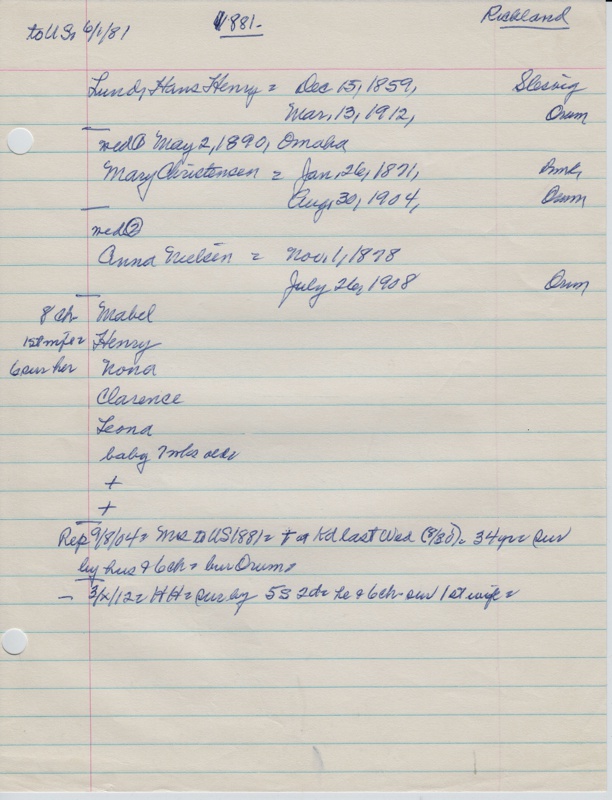 to US 6/1/81 1881. Richland
Lund, Hans Henry = Dec 15, 1859, Slesvig
Mar, 13, 1912, Orum
med ① May 2, 1890, Omaha
Mary Christensen = Jan, 26, 1871, Dmk,
Aug, 30, 1904, Orum
med ②
Anna Nielsen = Nov. 1, 1878
July 26, 1908 Orum
8 ch Mabel
1st wife = Henry
6 sur her Nona
Clarence
Leona
baby 7 wks old
+
+
Rep 9/8/04 = Mrs to US 1881 = + at Kd last Wed (8/30) = 34 yr = sur
by hus & 6 ch = bur Orum =
- 3/x/12 = HH = sur by 5s 2d = Le & 6 ch sur 1st wife =